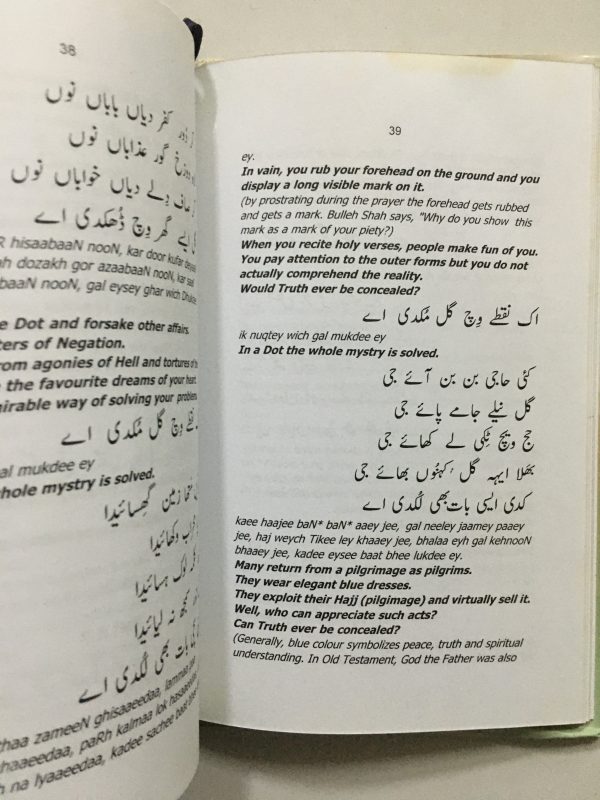 38
کفر دیاں باباں نوں
دوزخ گور عذاباں نوں
صاف دلے دیاں خواباں نوں
گل ایسے گھر وچ ڈھکدی اے
hisaabaaN nooN, kar door kufar deyaaN
dozakh gor azaabaaN nooN, kar saaf
nooN, gal eysey ghar wich Dhukdee
Dot and forsake other affairs.
of Negation.
from agonies of Hell and tortures of the
the favourite dreams of your heart.
way of solving your problem
نقطے وچ گل مکدی اے
gal mukdee ey
whole mystry is solved.
زمین گھسائیدا
محراب وکھائیدا
لوک ہسائیدا
نہ لیائیدا
بات بھی لکدی اے
zameeN ghisaaeedaa, lammaa
paRh kalmaa lok hasaaeedaa,
na lyaaeedaa, kadee sachee baat bhee
39
ey.
In vain, you rub your forehead on the ground and you
display a long visible mark on it.
(by prostrating during the prayer the forehead gets rubbed
and gets a mark. Bulleh Shah says, "Why do you show this
mark as a mark of your piety?)
When you recite holy verses, people make fun of you.
You pay attention to the outer forms but you do not
actually comprehend the reality.
Would Truth ever be concealed?
اک نقطے وِچ گل مُکدی اے
ik nuqtey wich gal mukdee ey
In a Dot the whole mystry is solved.
کئی حاجی بن بن آئے جی
گل نیلے جامے پائے جی
حج ویچ ٹِکی لے کھائے جی
بھلا ایہہ گل کہنُوں بھائے جی
کدی ایسی بات بھی لُکدی اے
kaee haajee baN* baN* aaey jee, gal neeley jaamey paaey
jee, haj weych Tikee ley khaaey jee, bhalaa eyh gal kehnooN
bhaaey jee, kadee eysee baat bhee lukdee ey.
Many return from a pilgrimage as pilgrims.
They wear elegant blue dresses.
They exploit their Hajj (pilgimage) and virtually sell it.
Well, who can appreciate such acts?
Can Truth ever be concealed?
(Generally, blue colour symbolizes peace, truth and spiritual
understanding. In Old Testament, God the Father was also